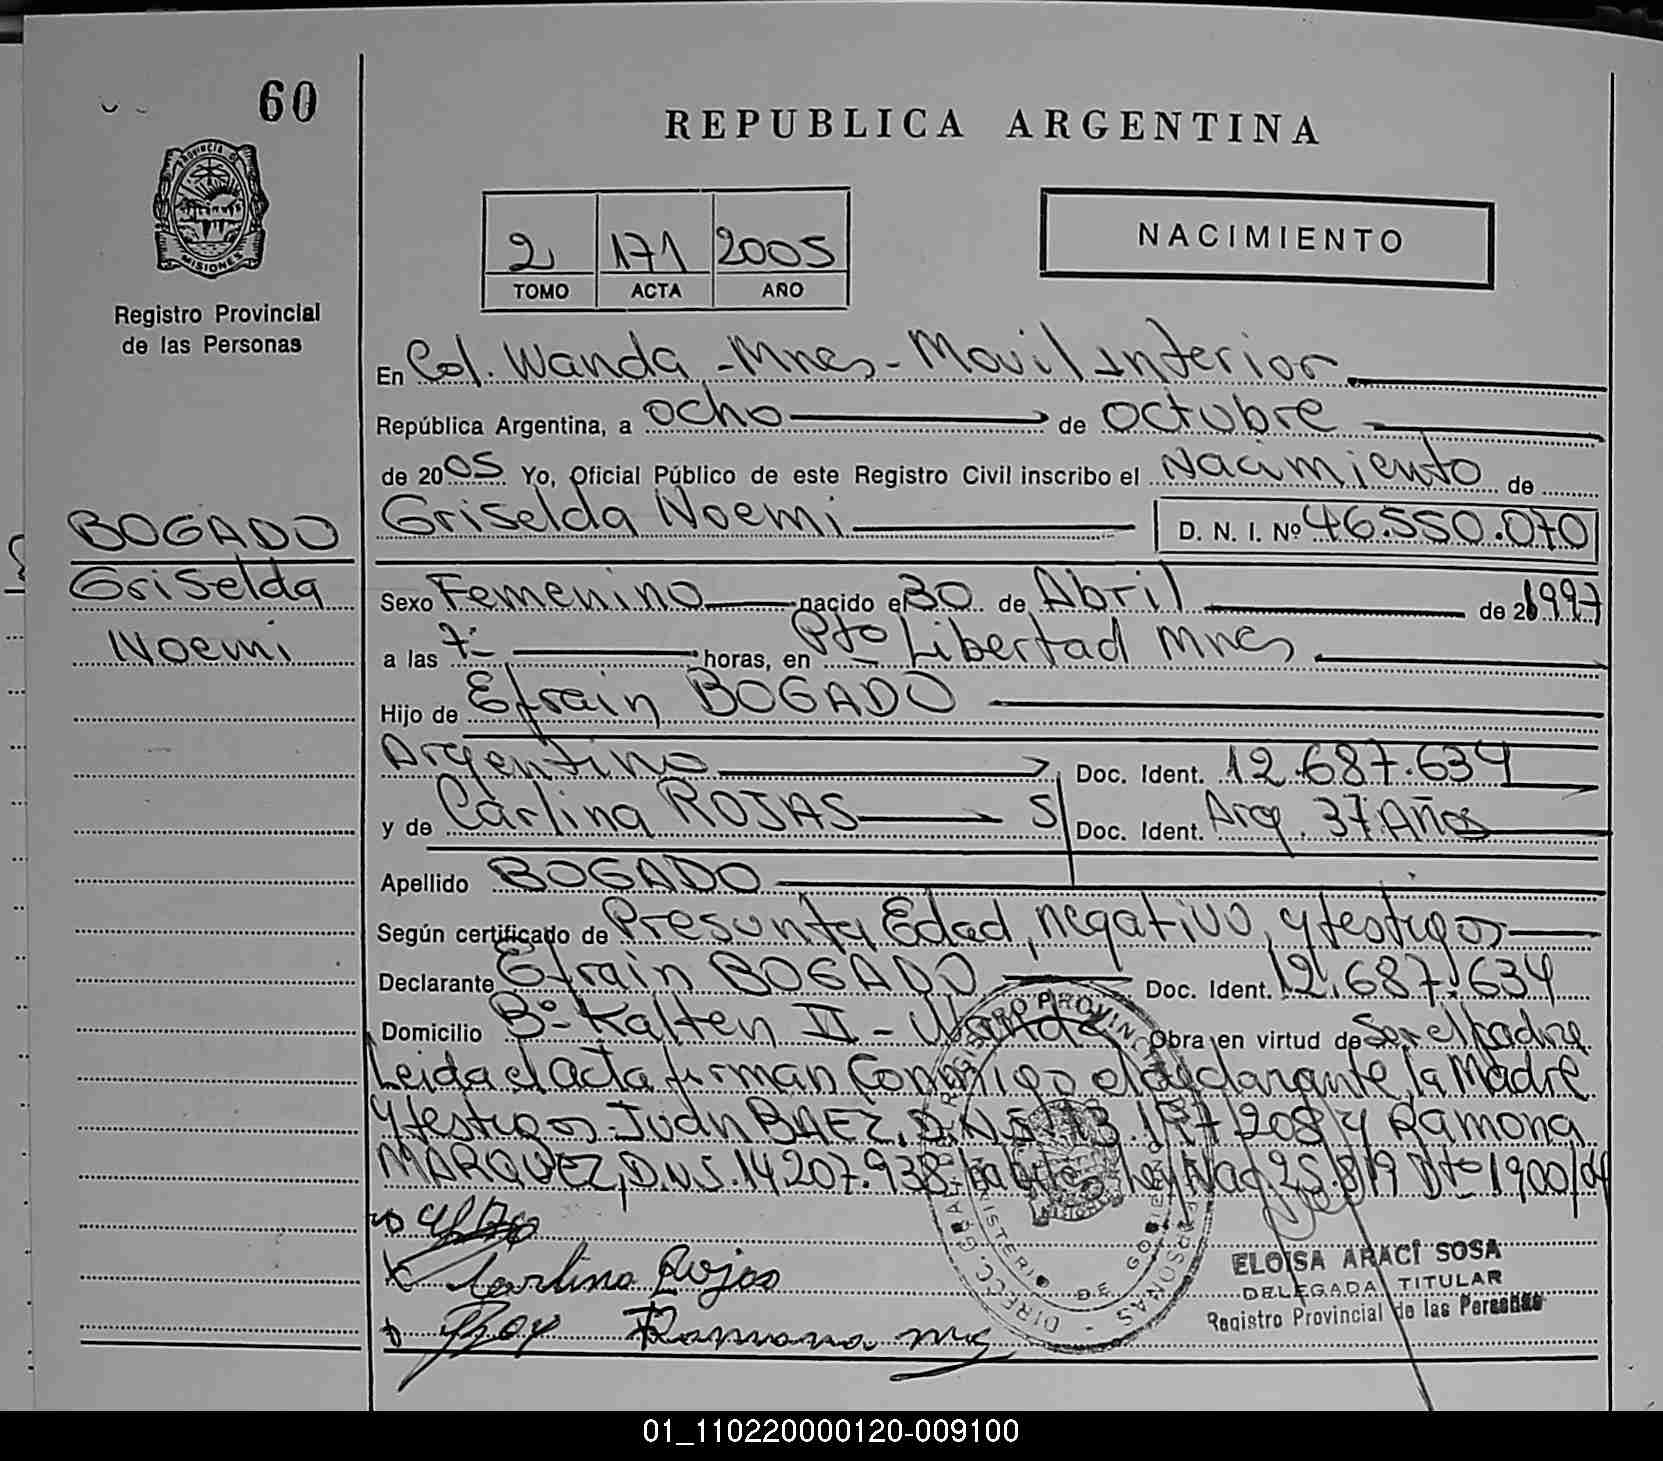 60
REPUBLICA ARGENTINA
PROVINCIA DE
MISIONES
Registro Provincial
de las Personas
2 171 2005
TOMO ACTA AÑO
NACIMIENTO
En Col. Wanda - Mnes - Movil Interior
República Argentina, a ocho de octubre
de 2005 Yo, Oficial Público de este Registro Civil inscribo el Nacimiento de
Griselda Noemi D. N. I. Nº 46.550.070
BOGADO
Griselda
Noemi
Sexo Femenino nacido el 30 de Abril de 1997
a las 7- horas, en Pto Libertad Mnes
Hijo de Efrain BOGADO
Argentino Doc. Ident. 12.687.634
y de Carlina ROJAS S/ Doc. Ident. Arg. 37 Años
Apellido BOGADO
Según certificado de Presunta Edad, negativo, y testigos
Declarante Efrain BOGADO Doc. Ident. 12.687.634
Domicilio Bº- Kalten II - Wanda Obra en virtud de Ser el padre
Leida el Acta firman Conmigo el declarante, la Madre
y testigos Juan BAEZ, D.N.I. 13.197.208 y Ramona
MARQUEZ, D.N.I. 14.207.938 Ley Nac 25.819 Dto 1900/04
Carlina Rojas
Ramona
REGISTRO PROVINCIAL DE LAS PERSONAS - DIRECC. GRAL.
MINISTERIO DE GOBIERNO
ELOISA ARACI SOSA
DELEGADA TITULAR
Registro Provincial de las Personas
01_110220000120-009100